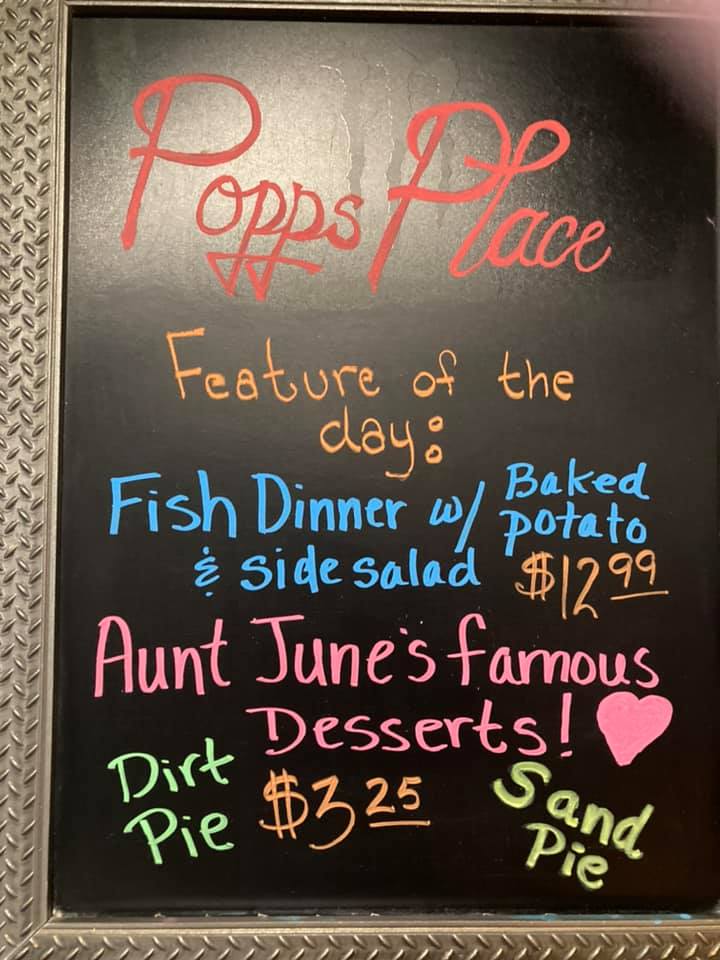 Popps Place
Feature of the
day:
Fish Dinner w/ Baked potato
& side salad $12.99
Aunt June's famous
Desserts!
Dirt Pie $3.25 Sand Pie